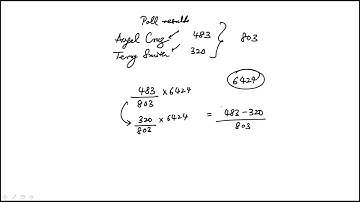 Poll results
Angel Cruz 483
Terry Smith 320
803
6424
483/803 × 6424
320/803 × 6424 = 483 − 320/803